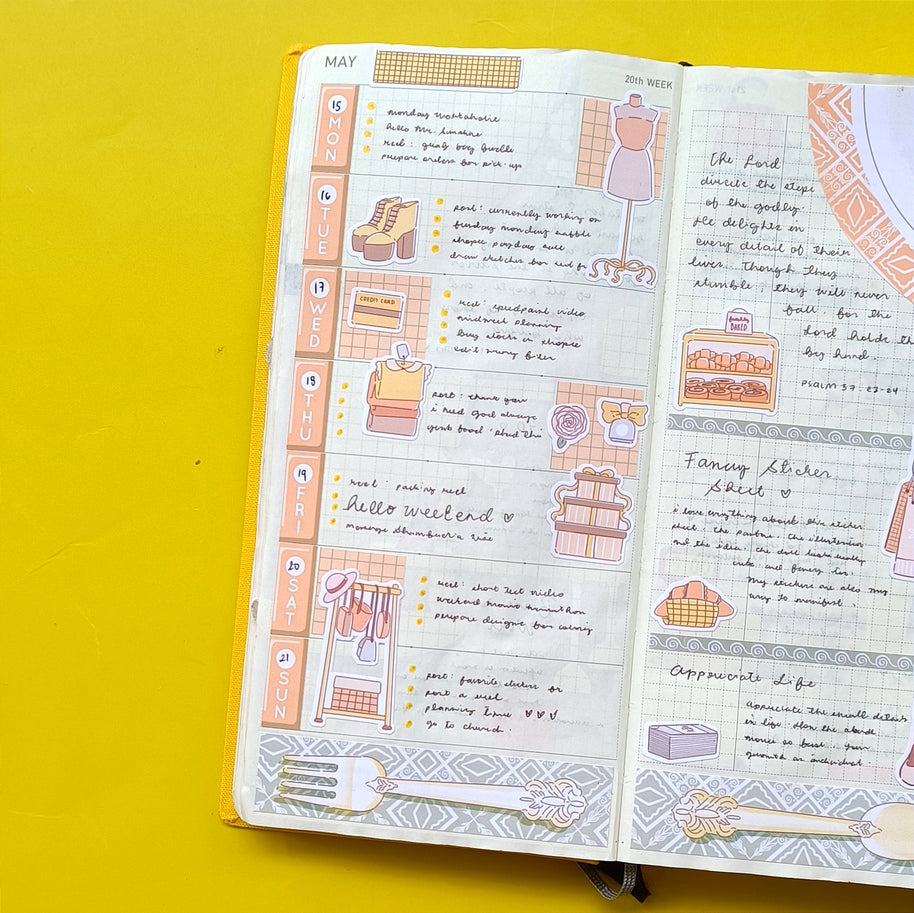 MAY
20th WEEK
15 MON
monday workaholic
hello Mr. Sunshine
reel : grab bag bundle
prepare orders for pick-up
16 TUE
post : currently working on
sunday monday
shopee payday sale
draw sketches for
17 WED
CREDIT CARD
reel : speedpaint video
midweek planning
buy stocks in shopee
edit
18 THU
post : thank you
i need God always
good food
19 FRI
reel : packing reel
hello weekend ♡
20 SAT
reel : short text video
weekend movie marathon
prepare designs for
21 SUN
post : favorite sticker of
post a reel
planning time ♡♡♡
go to church.
21st WEEK
The Lord
directs the steps
of the godly.
He delights in
every detail of their
lives. Though they
stumble, they will never
fall, for the
Lord holds th
by hand.
PSALM 37 : 23-24
BAKED
Fancy Sticker
Sheet ♡
i love everything about this sticker
sheet : the pantone, the illustration
and the idea. the doll looks really
cute and fancy too.
My stickers are also my
way to manifest.
Appreciate Life
appreciate the small details
in life.